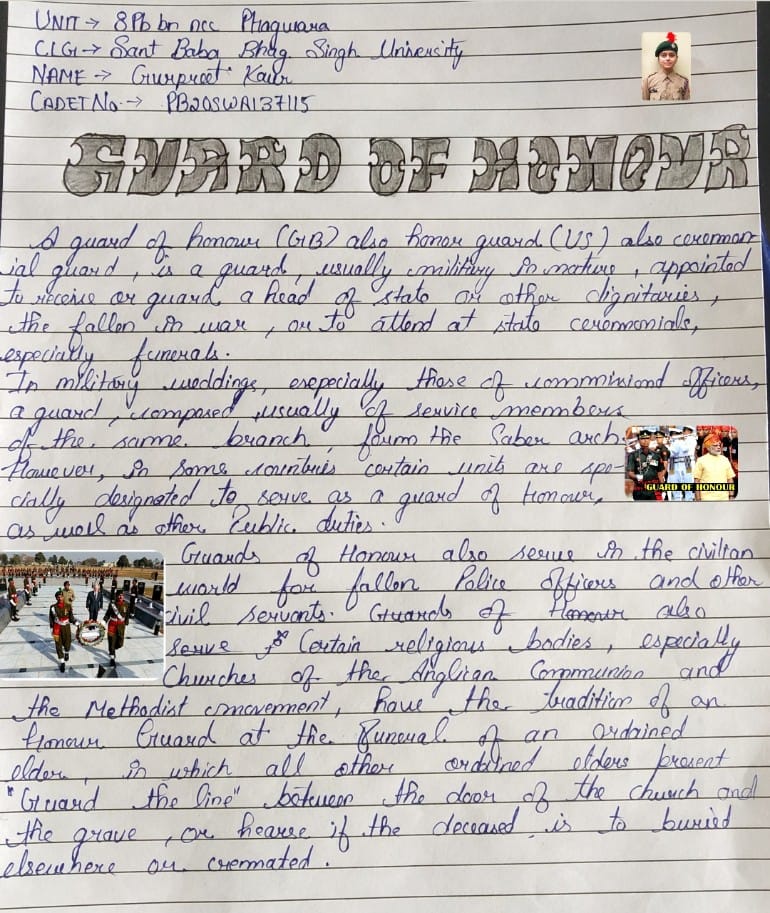 UNIT → 8Pb bn ncc Phagwara
C.I.G → Sant Baba Bhag Singh University
NAME → Gurpreet Kaur
CADET No. → PB20SWA137115
GUARD OF HONOUR
A guard of honour (GB) also honor guard (US) also ceremon-
ial guard, is a guard, usually military in nature, appointed
to receive or guard a head of state or other dignitaries,
the fallen in war, or to attend at state ceremonials,
especially funerals.
In military weddings, esepecially those of commmisiond officers,
a guard, composed usually of service members
of the same branch, form the Saber arch.
However, in some countries certain units are spe-
GUARD OF HONOUR
cially designated to serve as a guard of honour,
as well as other Public duties.
Guards of Honour also serve in the civilian
world for fallen Police officers and other
civil servants. Guards of Honour also
serve Certain religious bodies, especially
Churches of the Anglican Communion and
the Methodist movement, have the tradition of an
honour Guard at the Funeral of an ordained
elder, in which all other ordained elders present
"Guard the line" between the door of the church and
the grave, or hearse if the deceased is to buried
elsewhere or cremated.